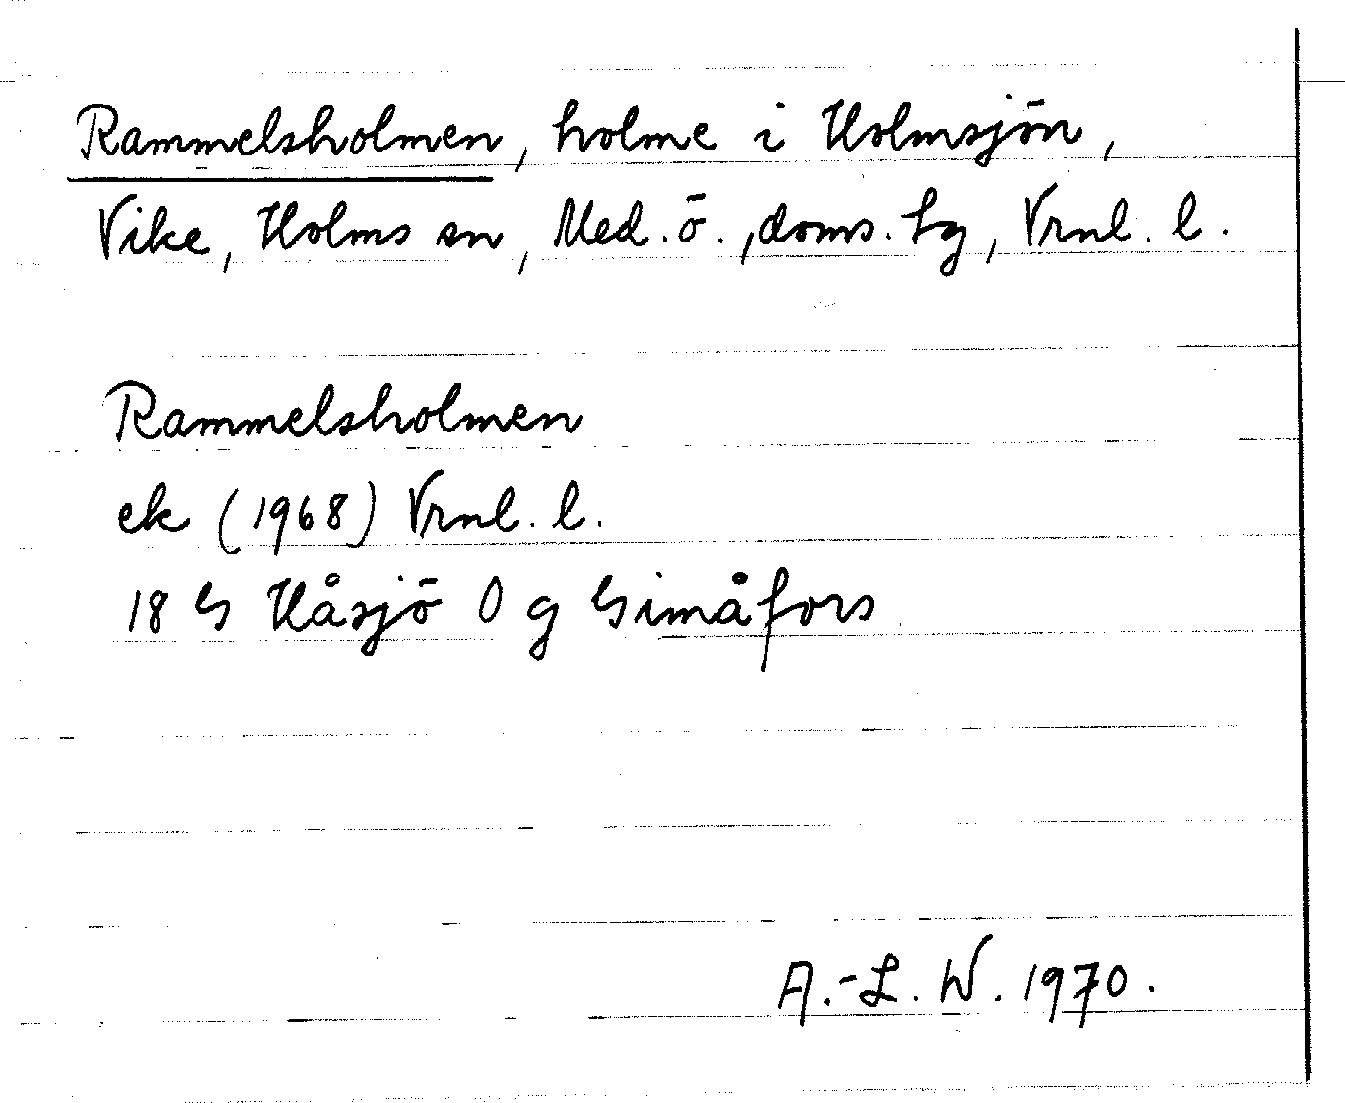 Rammelsholmen, holme i Holmsjön,
Vike, Holms sn, Med. ö., doms. tg, Vrnl. l.
Rammelsholmen
ek (1968) Vrnl. l.
18 G Håsjö O g Gimåfors
A.-L. W. 1970.